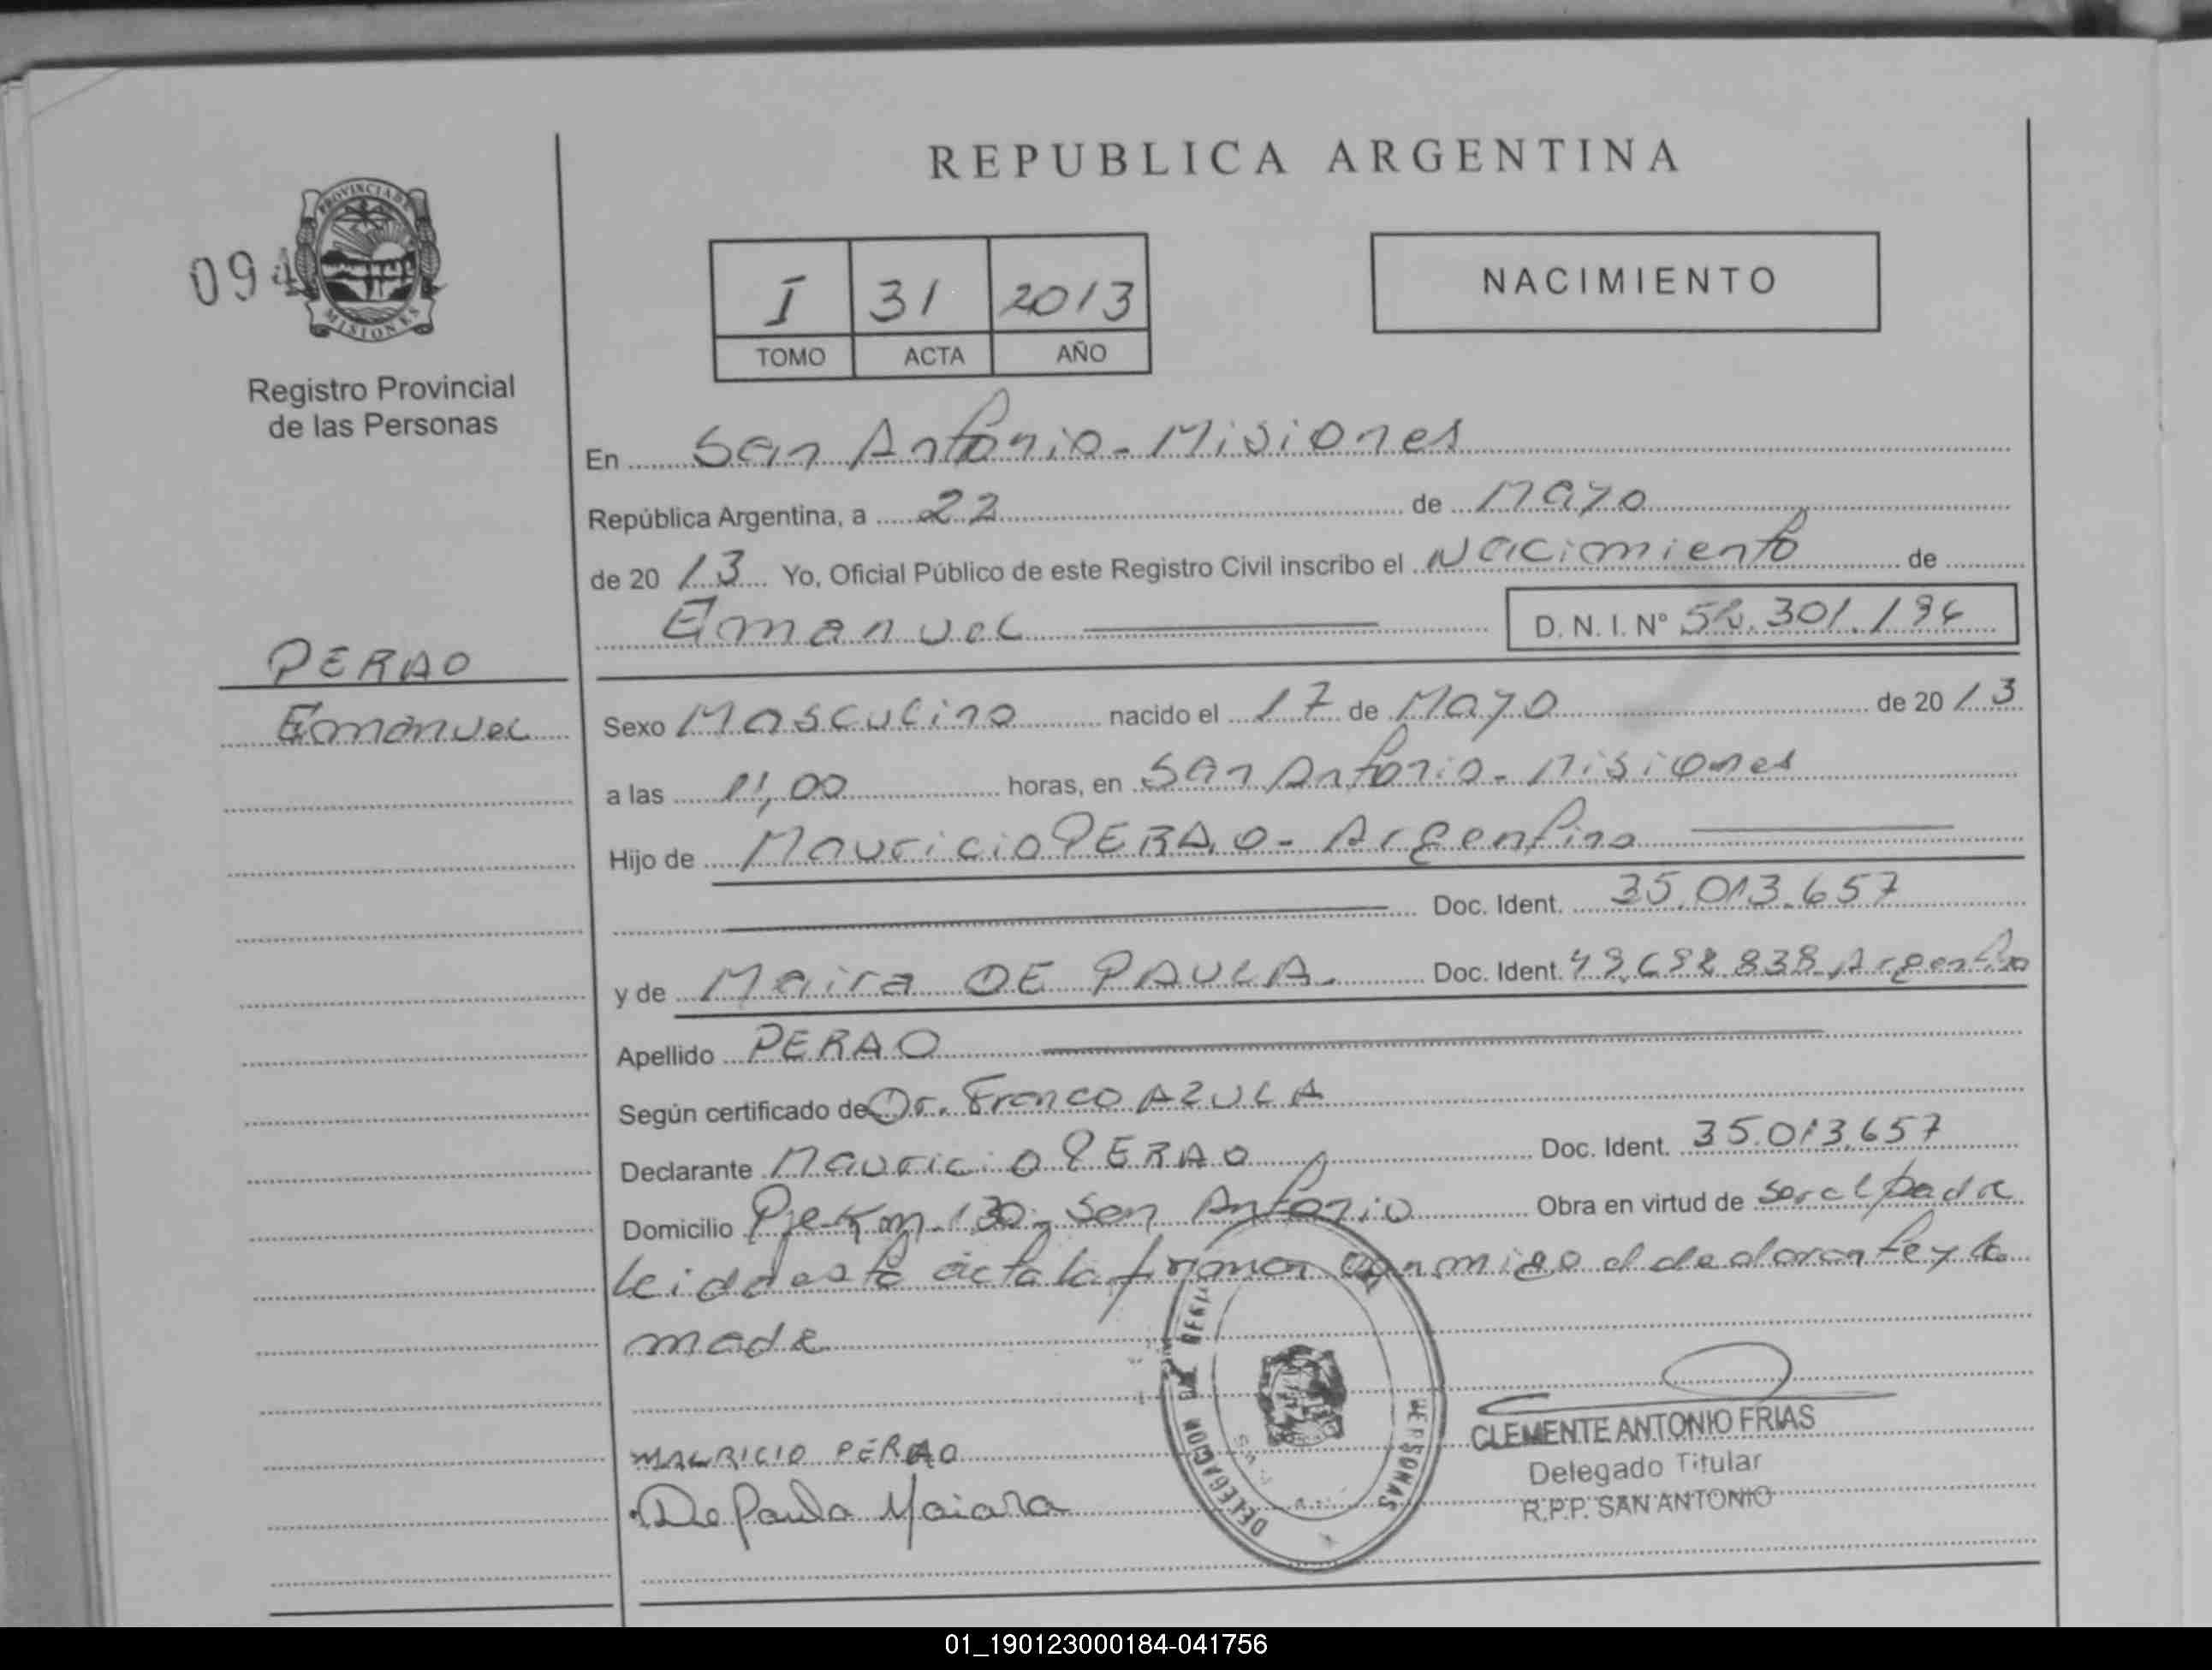 REPUBLICA ARGENTINA
PROVINCIA DE
MISIONES
094
Registro Provincial
de las Personas
I 31 2013
TOMO ACTA AÑO
NACIMIENTO
En San Antonio - Misiones
República Argentina, a 22 de Mayo
de 20 13 Yo, Oficial Público de este Registro Civil inscribo el Nacimiento de
Emanuel D. N. I. Nº
PERAO
Emanuel
Sexo Masculino nacido el 17 de Mayo de 20 13
a las 11,00 horas, en San Antonio - Misiones
Hijo de Mauricio PERAO - Argentino
Doc. Ident. 35.013.657
y de Maira DE PAULA. Doc. Ident. Argentina
Apellido PERAO
Según certificado de Dr. Franco AZULA
Declarante Mauricio PERAO Doc. Ident. 35.013.657
Domicilio Pje Km. 130 - San Antonio Obra en virtud de ser el padre
Leida esta acta la firman conmigo el declarante y la
madre
MAURICIO PERAO
De Paula Maiara
DELEGACION DEL PERSONAS
CLEMENTE ANTONIO FRIAS
Delegado Titular
R.P.P. SAN ANTONIO
01_190123000184-041756